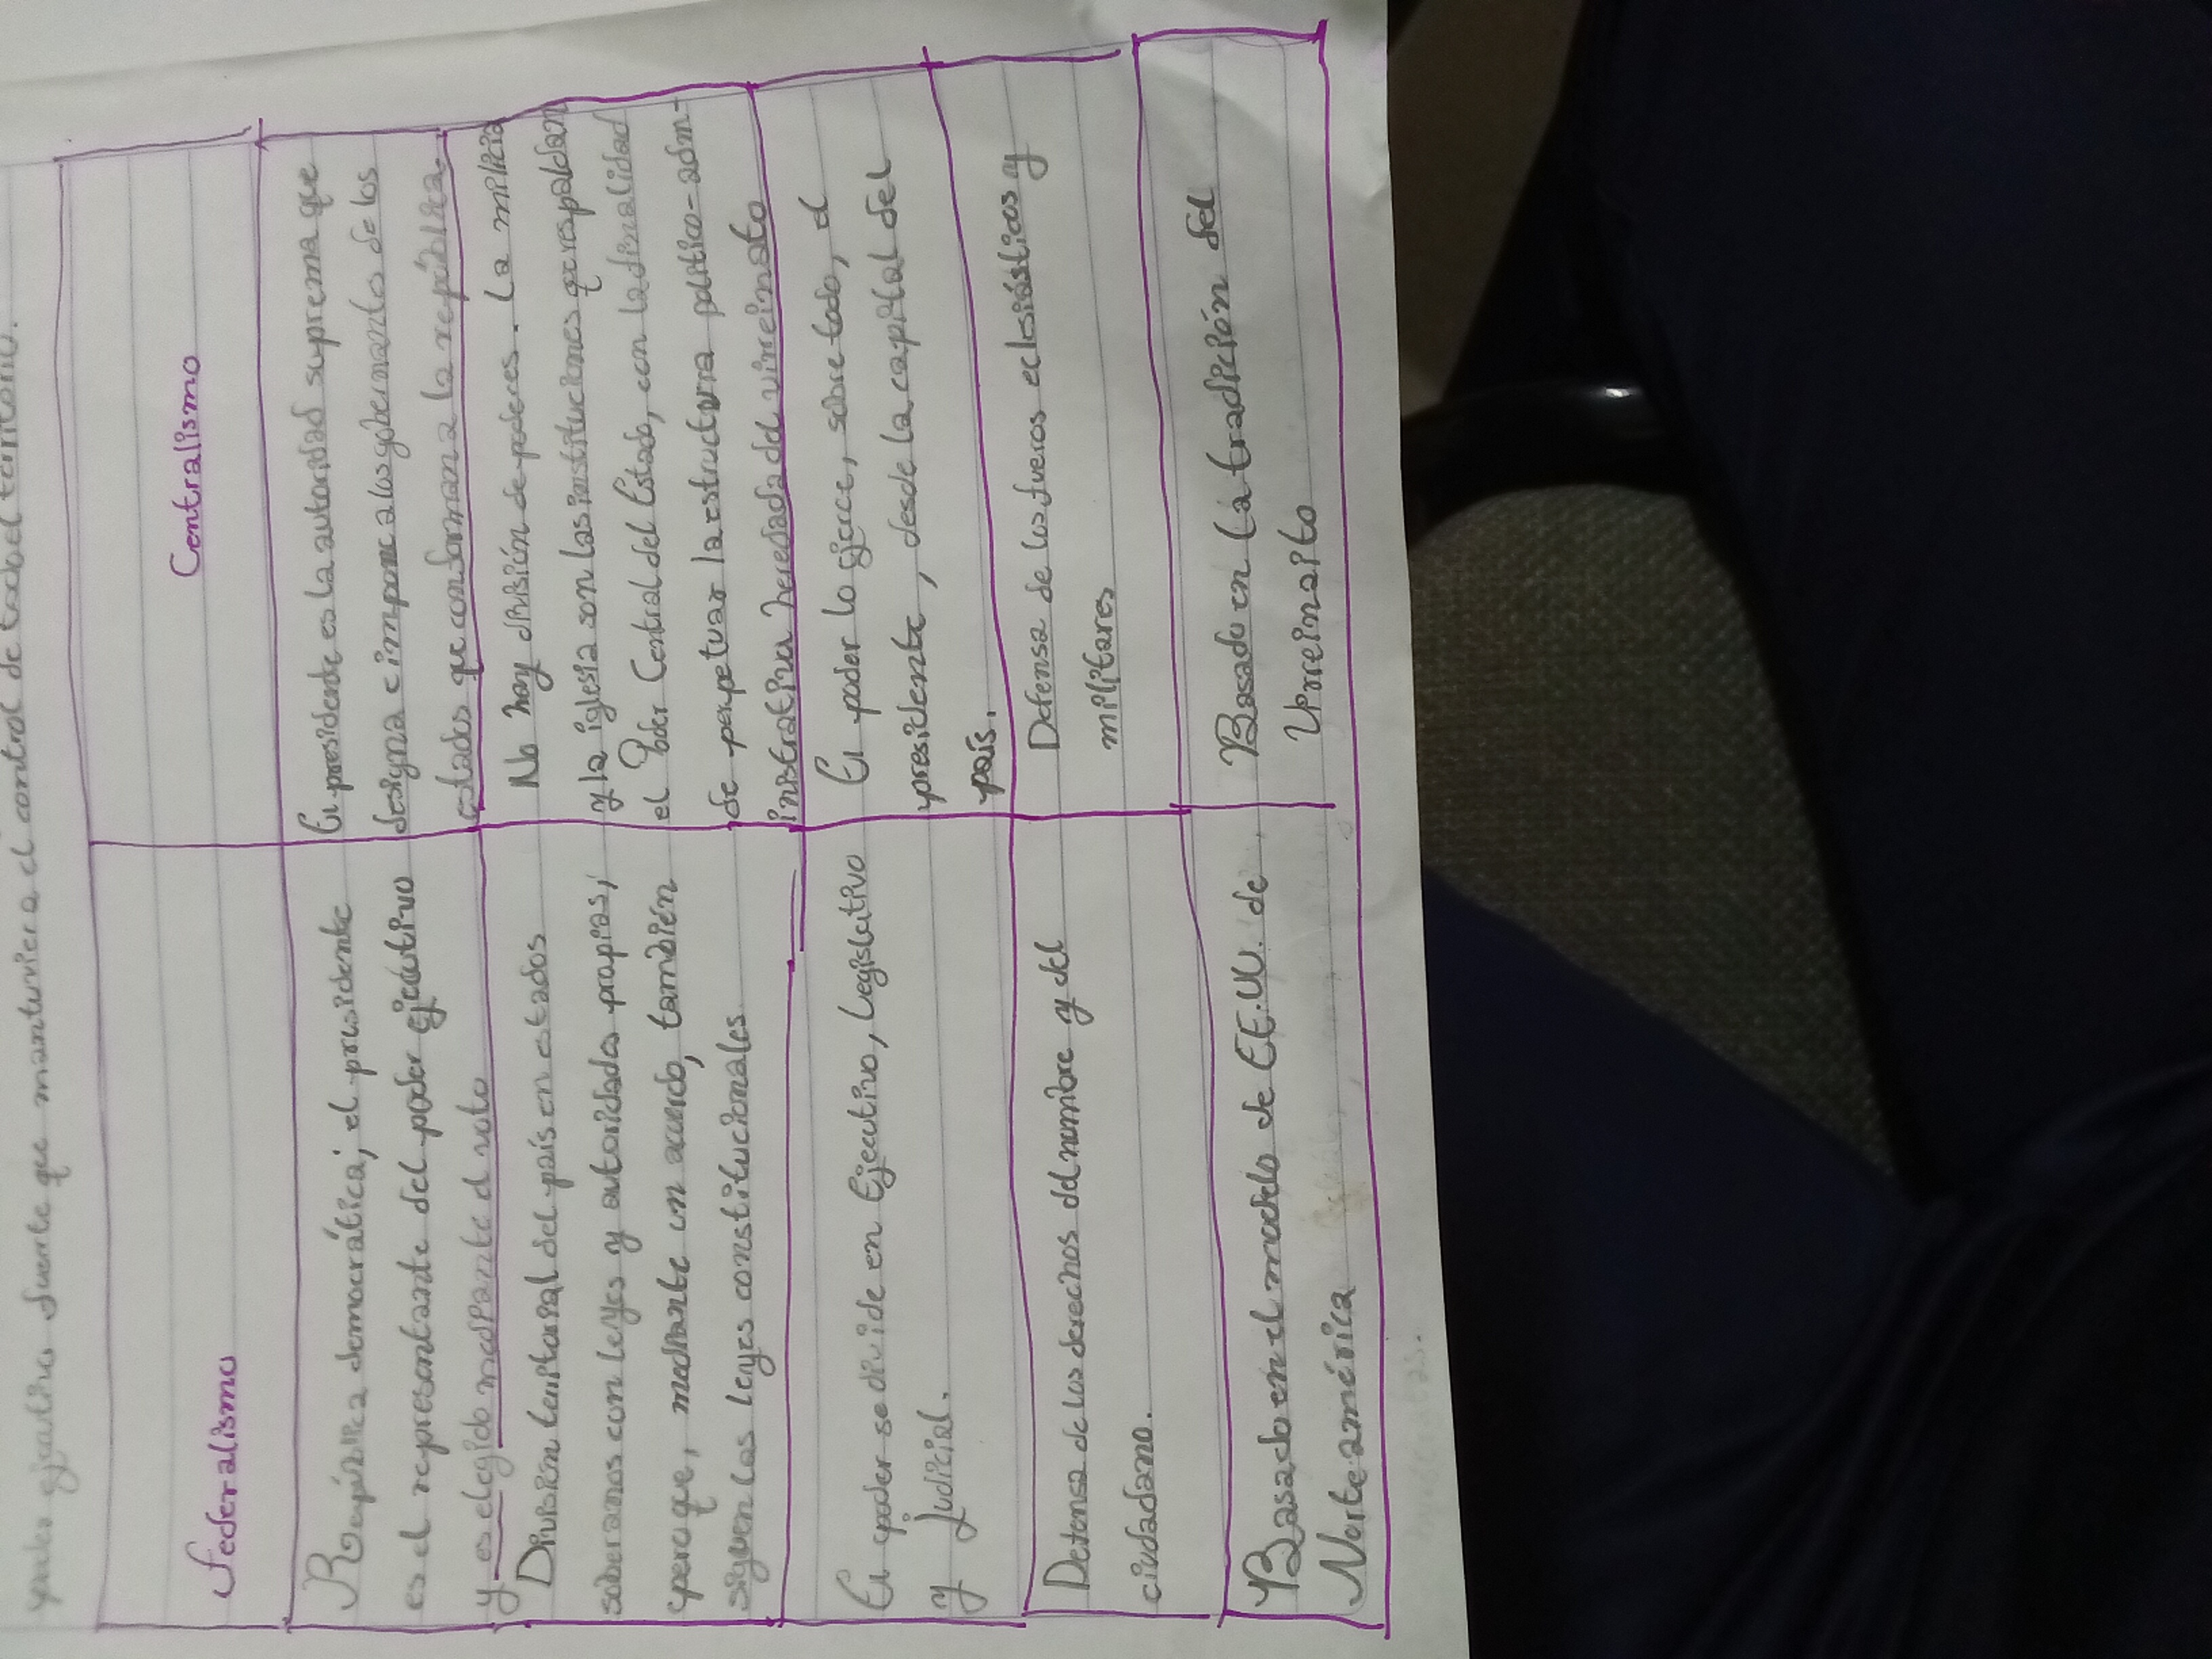 poder ejecutivo fuerte que mantuviera el control de todo el territorio.
Federalismo
Centralismo
República democrática; el presidente
es el representante del poder ejecutivo
y es elegido mediante el voto
El presidente es la autoridad suprema que
designa e impone a los gobernantes de los
estados que conforman a la república.
División territorial del país en estados
soberanos con leyes y autoridades propias,
pero que, mediante un acuerdo, también
siguen las leyes constitucionales.
No hay división de poderes. La milicia
y la iglesia son las instituciones que respaldan
el Poder Central del Estado, con la finalidad
de perpetuar la estructura político-adm-
inistrativa heredada del virreinato
El poder se divide en Ejecutivo, Legislativo
y Judicial.
El poder lo ejerce, sobre todo, el
presidente, desde la capital del
país.
Defensa de los derechos del hombre y del
ciudadano.
Defensa de los fueros eclesiásticos y
militares
Basado en el modelo de EE.UU. de
Norteamérica
Basado en la tradición del
Virreinaito